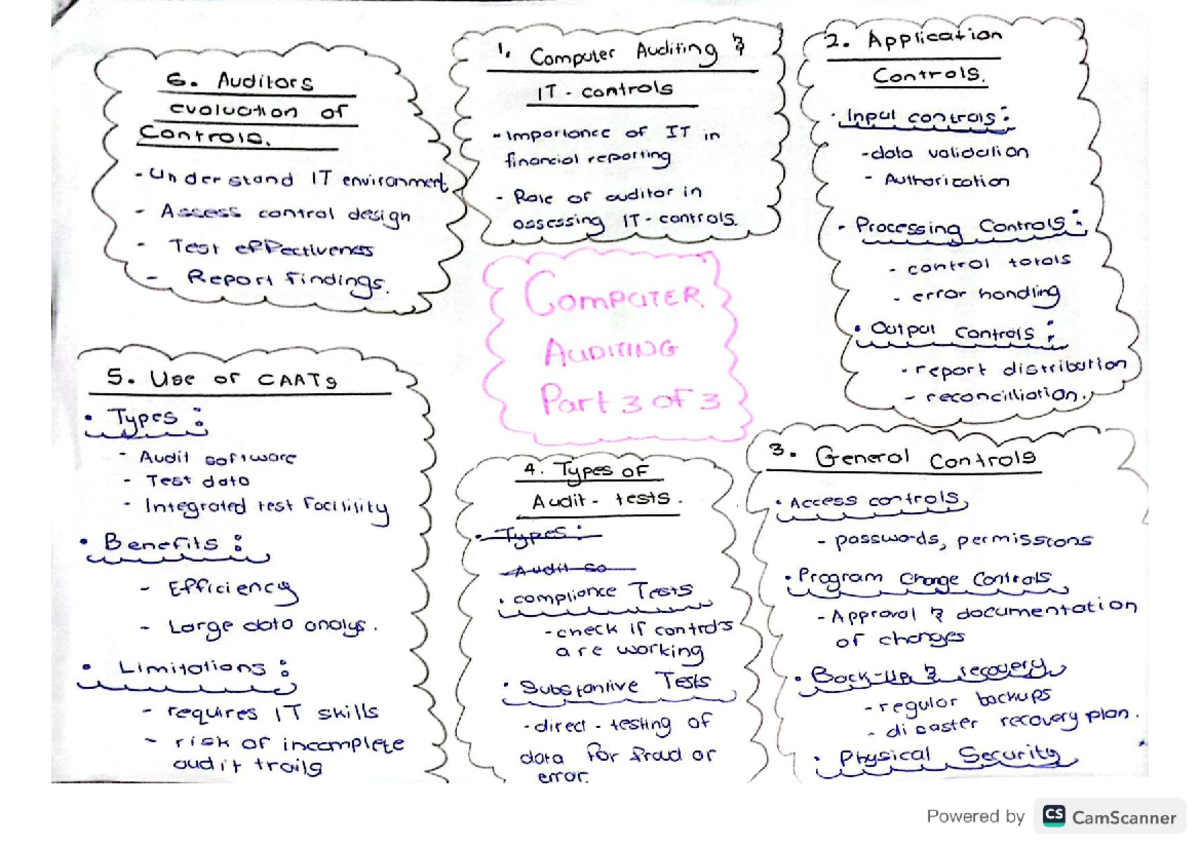 1. Computer Auditing &
IT - controls
- Importance of IT in
financial reporting
- Role of auditor in
assessing IT - controls.
2. Application
Controls.
· Input controls:
- data validation
- Authorization
· Processing Controls:
- control totals
- error handling
· Output controls:
- report distribution
- reconcilliation.
3. General Controls
· Access controls
- passwords, permissions
· Program Change Controls
- Approval & documentation
of changes
· Back-up & recovery
- regular backups
- disaster recovery plan.
· Physical Security
4. Types of
Audit - tests.
· Types:
- Audit so
· compliance Tests
- check if controls
are working
· Substantive Tests
- direct - testing of
data for fraud or
error.
5. Use of CAATs
· Types:
- Audit software
- Test data
- Integrated test facilility
· Benefits:
- Efficiency
- Large data analys.
· Limitations:
- requires IT skills
- risk of incomplete
audit trails
6. Auditors
evaluation of
Controls.
- Understand IT environment
- Assess control design
- Test effectiveness
- Report findings.
COMPUTER
AUDITING
Part 3 of 3
Powered by CS CamScanner